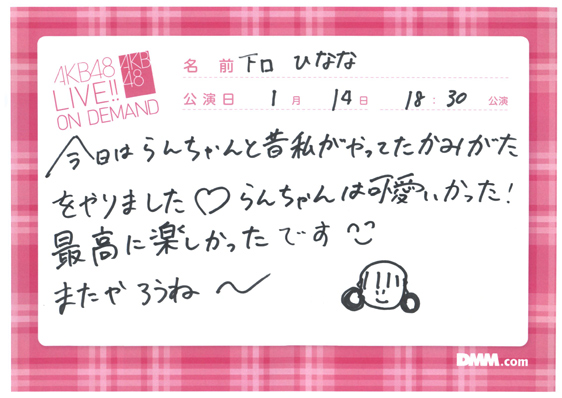 AKB48
LIVE!!
ON DEMAND
AKB
48
名 前 下口 ひなな
公演日 1月 14日 18:30 公演
今日はらんちゃんと昔私がやってたかみがた
をやりました♡らんちゃんは可愛いかった!
最高に楽しかったです
またやろうね〜
DMM.com